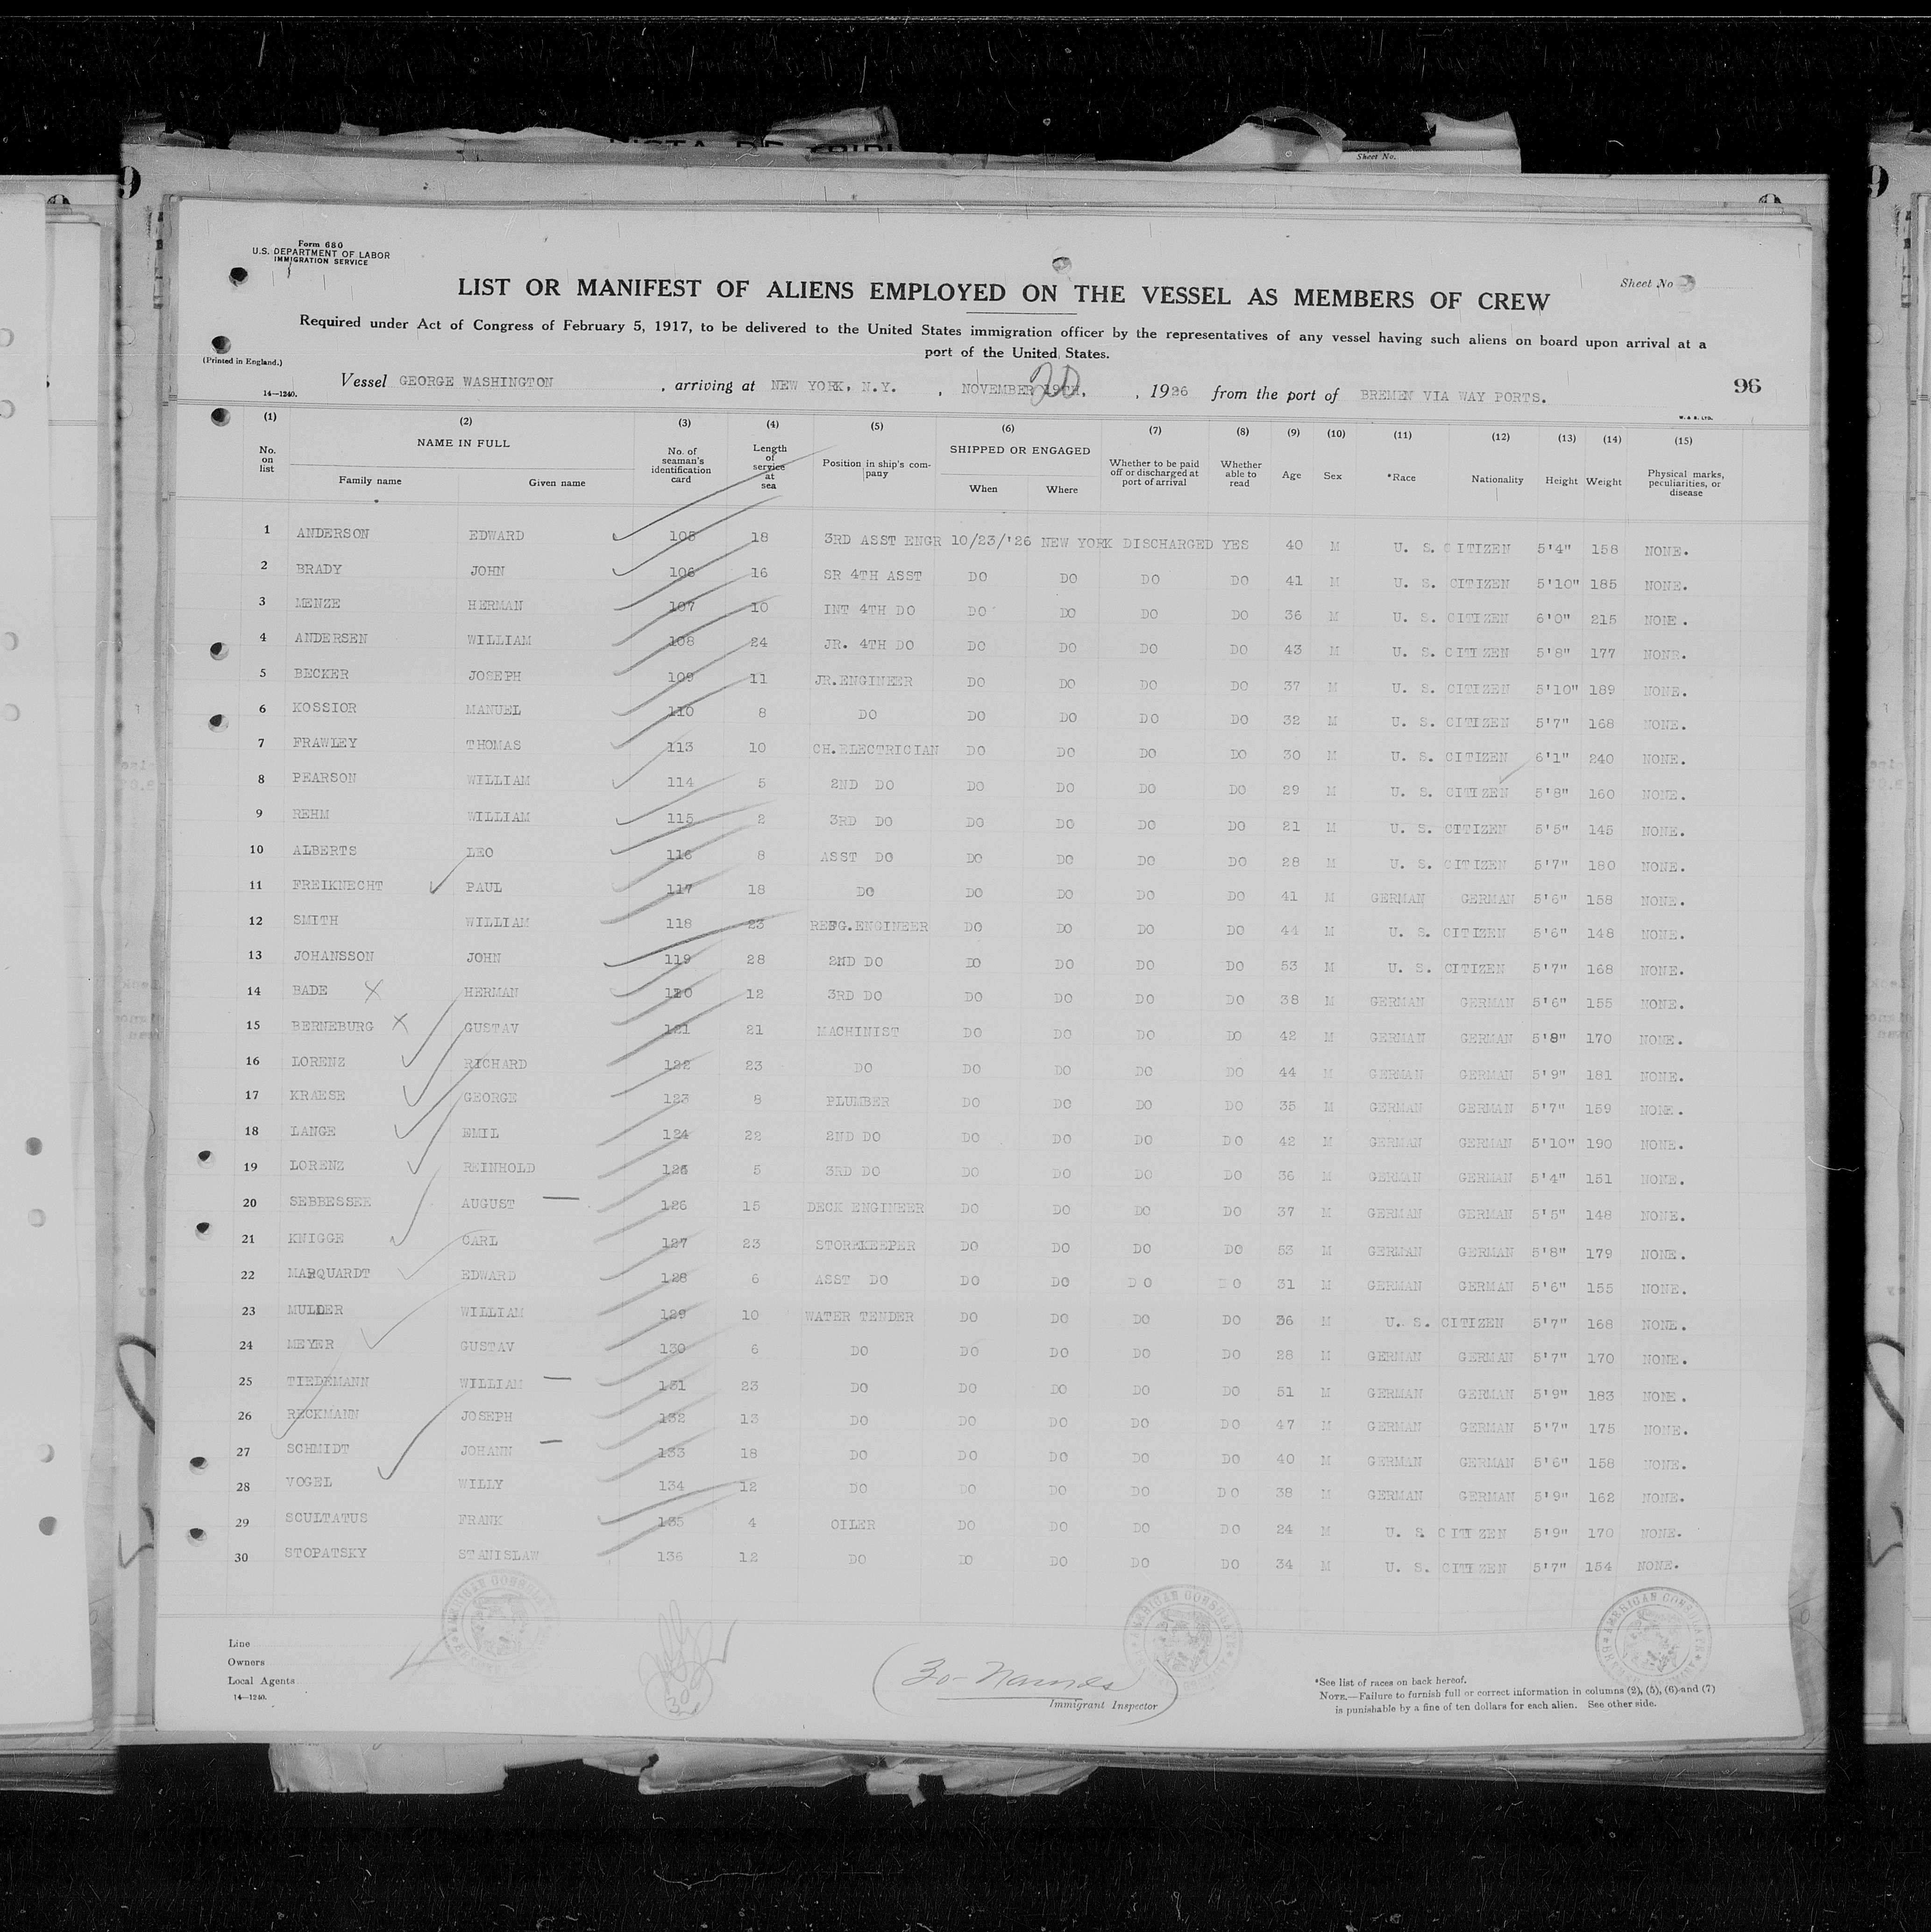 Sheet No.
Form 680
U.S. DEPARTMENT OF LABOR
IMMIGRATION SERVICE
Sheet No
LIST OR MANIFEST OF ALIENS EMPLOYED ON THE VESSEL AS MEMBERS OF CREW
Required under Act of Congress of February 5, 1917, to be delivered to the United States immigration officer by the representatives of any vessel having such aliens on board upon arrival at a
port of the United States.
(Printed in England.)
Vessel GEORGE WASHINGTON , arriving at NEW YORK, N.Y. , NOVEMBER 19TH, 20 , 1926 from the port of BREMEN VIA WAY PORTS.
96
14—1240.
W. & S. LTD.
(1) (2) (3) (4) (5) (6) (7) (8) (9) (10) (11) (12) (13) (14) (15)
No. on list NAME IN FULL Family name Given name No. of seaman's identification card Length of service at sea Position in ship's company SHIPPED OR ENGAGED When Where Whether to be paid off or discharged at port of arrival Whether able to read Age Sex *Race Nationality Height Weight Physical marks, peculiarities, or disease
1 ANDERSON EDWARD 105 18 3RD ASST ENGR 10/23/'26 NEW YORK DISCHARGED YES 40 M U. S. CITIZEN 5'4" 158 NONE.
2 BRADY JOHN 106 16 SR 4TH ASST DO DO DO DO 41 M U. S. CITIZEN 5'10" 185 NONE.
3 MENZE HERMAN 107 10 INT 4TH DO DO DO DO DO 36 M U. S. CITIZEN 6'0" 215 NONE.
4 ANDERSEN WILLIAM 108 24 JR. 4TH DO DO DO DO DO 43 M U. S. CITIZEN 5'8" 177 NONR.
5 BECKER JOSEPH 109 11 JR.ENGINEER DO DO DO DO 37 M U. S. CITIZEN 5'10" 189 NONE.
6 KOSSIOR MANUEL 110 8 DO DO DO DO DO 32 M U. S. CITIZEN 5'7" 168 NONE.
7 FRAWLEY THOMAS 113 10 CH.ELECTRICIAN DO DO DO DO 30 M U. S. CITIZEN 6'1" 240 NONE.
8 PEARSON WILLIAM 114 5 2ND DO DO DO DO DO 29 M U. S. CITIZEN 5'8" 160 NONE.
9 REHM WILLIAM 115 2 3RD DO DO DO DO DO 21 M U. S. CITIZEN 5'5" 145 NONE.
10 ALBERTS LEO 116 8 ASST DO DO DO DO DO 28 M U. S. CITIZEN 5'7" 180 NONE.
11 FREIKNECHT PAUL 117 18 DO DO DO DO DO 41 M GERMAN GERMAN 5'6" 158 NONE.
12 SMITH WILLIAM 118 23 REFG.ENGINEER DO DO DO DO 44 M U. S. CITIZEN 5'6" 148 NONE.
13 JOHANSSON JOHN 119 28 2ND DO DO DO DO DO 53 M U. S. CITIZEN 5'7" 168 NONE.
14 BADE X HERMAN 120 12 3RD DO DO DO DO DO 38 M GERMAN GERMAN 5'6" 155 NONE.
15 BERNEBURG X GUSTAV 121 21 MACHINIST DO DO DO DO 42 M GERMAN GERMAN 5'8" 170 NONE.
16 LORENZ RICHARD 122 23 DO DO DO DO DO 44 M GERMAN GERMAN 5'9" 181 NONE.
17 KRAESE GEORGE 123 8 PLUMBER DO DO DO DO 35 M GERMAN GERMAN 5'7" 159 NONE.
18 LANGE EMIL 124 22 2ND DO DO DO DO DO 42 M GERMAN GERMAN 5'10" 190 NONE.
19 LORENZ REINHOLD 125 5 3RD DO DO DO DO DO 36 M GERMAN GERMAN 5'4" 151 NONE.
20 SEBBESSEE AUGUST 126 15 DECK ENGINEER DO DO DO DO 37 M GERMAN GERMAN 5'5" 148 NONE.
21 KNIGGE CARL 127 23 STOREKEEPER DO DO DO DO 53 M GERMAN GERMAN 5'8" 179 NONE.
22 MARQUARDT EDWARD 128 6 ASST DO DO DO DO DO 31 M GERMAN GERMAN 5'6" 155 NONE.
23 MULDER WILLIAM 129 10 WATER TENDER DO DO DO DO 36 M U. S. CITIZEN 5'7" 168 NONE.
24 MEYER GUSTAV 130 6 DO DO DO DO DO 28 M GERMAN GERMAN 5'7" 170 NONE.
25 TIEDEMANN WILLIAM 131 23 DO DO DO DO DO 51 M GERMAN GERMAN 5'9" 183 NONE.
26 RECKMANN JOSEPH 132 13 DO DO DO DO DO 47 M GERMAN GERMAN 5'7" 175 NONE.
27 SCHMIDT JOHANN 133 18 DO DO DO DO DO 40 M GERMAN GERMAN 5'6" 158 NONE.
28 VOGEL WILLY 134 12 DO DO DO DO DO 38 M GERMAN GERMAN 5'9" 162 NONE.
29 SCULTATUS FRANK 135 4 OILER DO DO DO DO 24 M U. S CITIZEN 5'9" 170 NONE.
30 STOPATSKY STANISLAW 136 12 DO DO DO DO DO 34 M U. S. CITIZEN 5'7" 154 NONE.
AMERICAN CONSULATE
AMERICAN CONSULATE
AMERICAN CONSULATE
Line
Owners
Local Agents
14—1240.
30
(30- Names)
Immigrant Inspector
*See list of races on back hereof.
NOTE.—Failure to furnish full or correct information in columns (2), (5), (6) and (7)
is punishable by a fine of ten dollars for each alien. See other side.